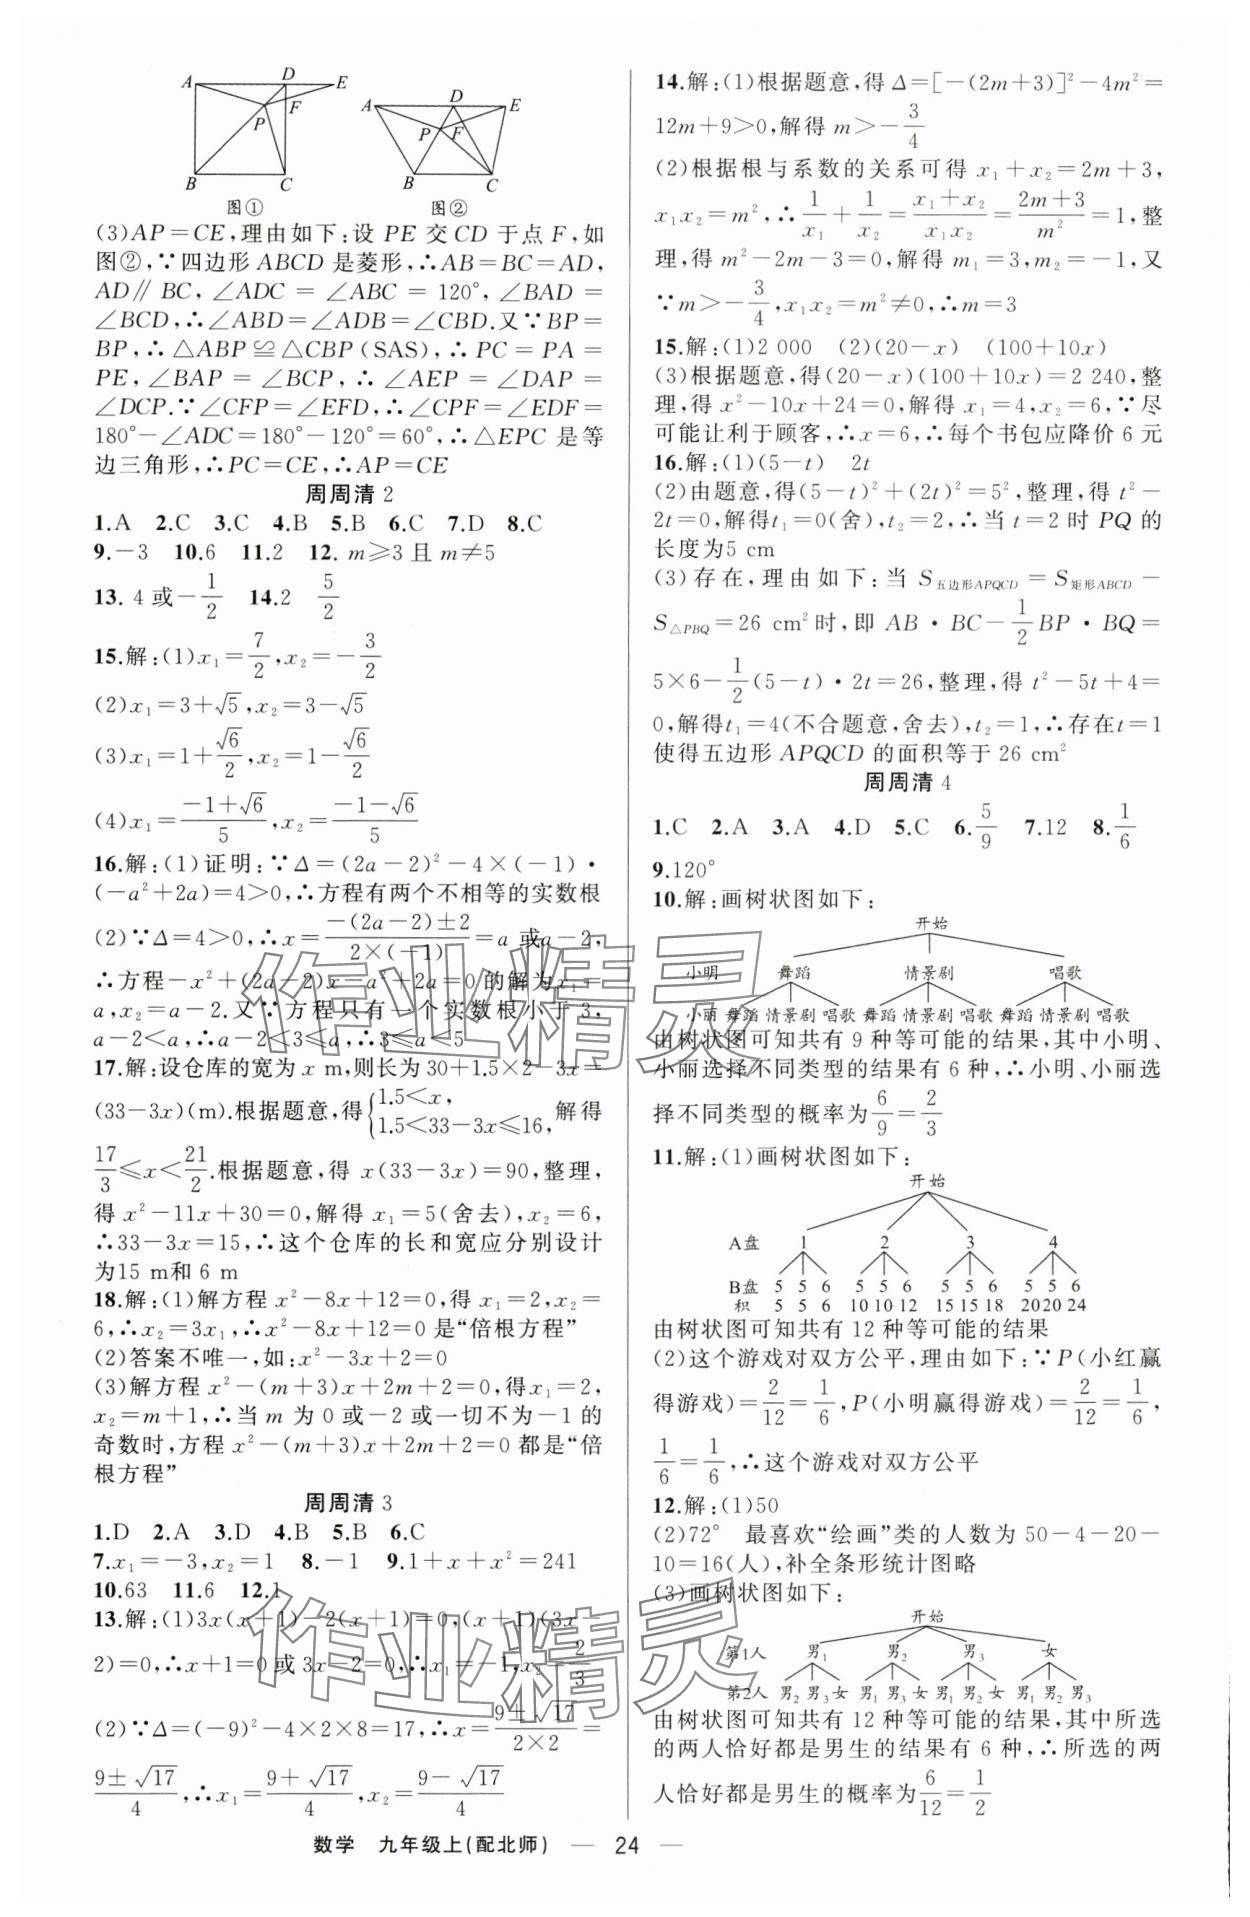 A D E
P F
B C
图①
A D E
P F
B C
图②
(3)AP=CE,理由如下:设 PE 交 CD 于点 F,如
图②,∵四边形 ABCD 是菱形,∴AB=BC=AD,
AD∥BC,∠ADC=∠ABC=120°,∠BAD=
∠BCD,∴∠ABD=∠ADB=∠CBD.又∵BP=
BP,∴△ABP≌△CBP(SAS),∴PC=PA=
PE,∠BAP=∠BCP,∴∠AEP=∠DAP=
∠DCP.∵∠CFP=∠EFD,∴∠CPF=∠EDF=
180°-∠ADC=180°-120°=60°,∴△EPC 是等
边三角形,∴PC=CE,∴AP=CE
周周清 2
1.A 2.C 3.C 4.B 5.B 6.C 7.D 8.C
9.-3 10.6 11.2 12. m≥3 且 m≠5
13. 4 或-1/2 14.2 5/2
15.解:(1)x₁=7/2,x₂=-3/2
(2)x₁=3+√5,x₂=3-√5
(3)x₁=1+√6/2,x₂=1-√6/2
(4)x₁=(-1+√6)/5,x₂=(-1-√6)/5
16.解:(1)证明:∵Δ=(2a-2)²-4×(-1)·
(-a²+2a)=4>0,∴方程有两个不相等的实数根
(2)∵Δ=4>0,∴x=(-(2a-2)±2)/(2×(-1))=a 或a-2,
∴方程-x²+(2a-2)x-a²+2a=0的解为x₁=
a,x₂=a-2.又∵方程只有一个实数根小于3,
a-2<a,∴a-2≤3≤a,∴3≤a<5
17.解:设仓库的宽为 x m,则长为 30+1.5×2-3x=
(33-3x)(m).根据题意,得{1.5<x, 1.5<33-3x≤16, 解得
17/3≤x<21/2.根据题意,得 x(33-3x)=90,整理,
得 x²-11x+30=0,解得 x₁=5(舍去),x₂=6,
∴33-3x=15,∴这个仓库的长和宽应分别设计
为15 m和 6 m
18.解:(1)解方程 x²-8x+12=0,得 x₁=2,x₂=
6,∴x₂=3x₁,∴x²-8x+12=0 是“倍根方程”
(2)答案不唯一,如:x²-3x+2=0
(3)解方程 x²-(m+3)x+2m+2=0,得x₁=2,
x₂=m+1,∴当 m 为 0 或-2 或一切不为-1 的
奇数时,方程 x²-(m+3)x+2m+2=0 都是“倍
根方程”
周周清 3
1.D 2.A 3.D 4.B 5.B 6.C
7.x₁=-3,x₂=1 8.-1 9.1+x+x²=241
10.63 11.6 12.1
13.解:(1)3x(x+1)-2(x+1)=0,(x+1)(3x
2)=0,∴x+1=0或 3x-2=0,∴x₁=-1,x₂=2/3
(2)∵Δ=(-9)²-4×2×8=17,∴x=(9±√17)/(2×2)=
(9±√17)/4,∴x₁=(9+√17)/4,x₂=(9-√17)/4
14.解:(1)根据题意,得 Δ=[-(2m+3)]²-4m²=
12m+9>0,解得 m>-3/4
(2)根据根与系数的关系可得 x₁+x₂=2m+3,
x₁x₂=m²,∴1/x₁+1/x₂=(x₁+x₂)/(x₁x₂)=(2m+3)/m²=1,整
理,得 m²-2m-3=0,解得 m₁=3,m₂=-1,又
∵m>-3/4,x₁x₂=m²≠0,∴m=3
15.解:(1)2 000 (2)(20-x) (100+10x)
(3)根据题意,得(20-x)(100+10x)=2 240,整
理,得 x²-10x+24=0,解得 x₁=4,x₂=6,∵尽
可能让利于顾客,∴x=6,∴每个书包应降价 6 元
16.解:(1)(5-t) 2t
(2)由题意,得(5-t)²+(2t)²=5²,整理,得 t²-
2t=0,解得t₁=0(舍),t₂=2,∴当 t=2 时 PQ 的
长度为5 cm
(3)存在,理由如下:当 S五边形APQCD=S矩形ABCD-
S△PBQ=26 cm²时,即 AB·BC-1/2BP·BQ=
5×6-1/2(5-t)·2t=26,整理,得 t²-5t+4=
0,解得t₁=4(不合题意,舍去),t₂=1,∴存在t=1
使得五边形 APQCD 的面积等于 26 cm²
周周清 4
1.C 2.A 3.A 4.D 5.C 6.5/9 7.12 8.1/6
9.120°
10.解:画树状图如下:
开始
小明 舞蹈 情景剧 唱歌
小丽 舞蹈 情景剧 唱歌 舞蹈 情景剧 唱歌 舞蹈 情景剧 唱歌
由树状图可知共有 9 种等可能的结果,其中小明、
小丽选择不同类型的结果有 6 种,∴小明、小丽选
择不同类型的概率为6/9=2/3
11.解:(1)画树状图如下:
开始
A盘 1 2 3 4
B盘 5 5 6 5 5 6 5 5 6 5 5 6
积 5 5 6 10 10 12 15 15 18 20 20 24
由树状图可知共有 12 种等可能的结果
(2)这个游戏对双方公平,理由如下:∵P(小红赢
得游戏)=2/12=1/6,P(小明赢得游戏)=2/12=1/6,
1/6=1/6,∴这个游戏对双方公平
12.解:(1)50
(2)72° 最喜欢“绘画”类的人数为 50-4-20-
10=16(人),补全条形统计图略
(3)画树状图如下:
开始
第1人 男₁ 男₂ 男₃ 女
第2人 男₂ 男₃ 女 男₁ 男₃ 女 男₁ 男₂ 女 男₁ 男₂ 男₃
由树状图可知共有 12 种等可能的结果,其中所选
的两人恰好都是男生的结果有 6 种,∴所选的两
人恰好都是男生的概率为6/12=1/2
数学 九年级上(配北师) — 24 —
作业精灵
作业精灵